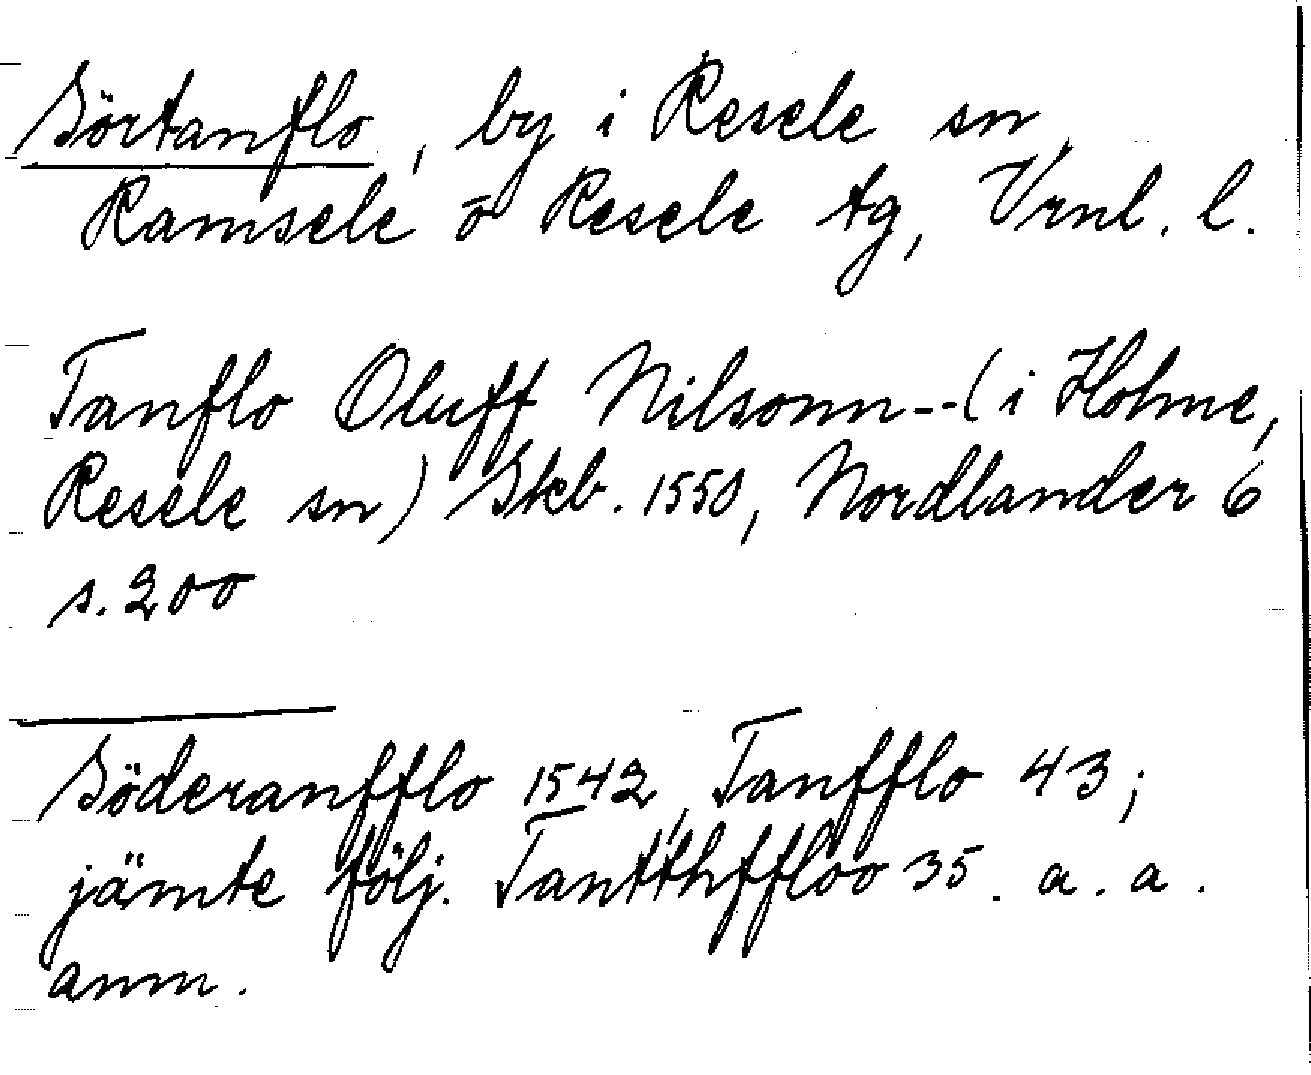 Sörtanflo, by i Resele sn,
Ramsele o Resele tg, Vrnl. l.
Tanflo Oluff Nilsonn--(i Holme,
Resele sn) Skb. 1550, Nordlander 6
s. 200
Söderanfflo 1542, Tanfflo 43;
jämte följ. Tantthffloo 35. a. a.
anm.